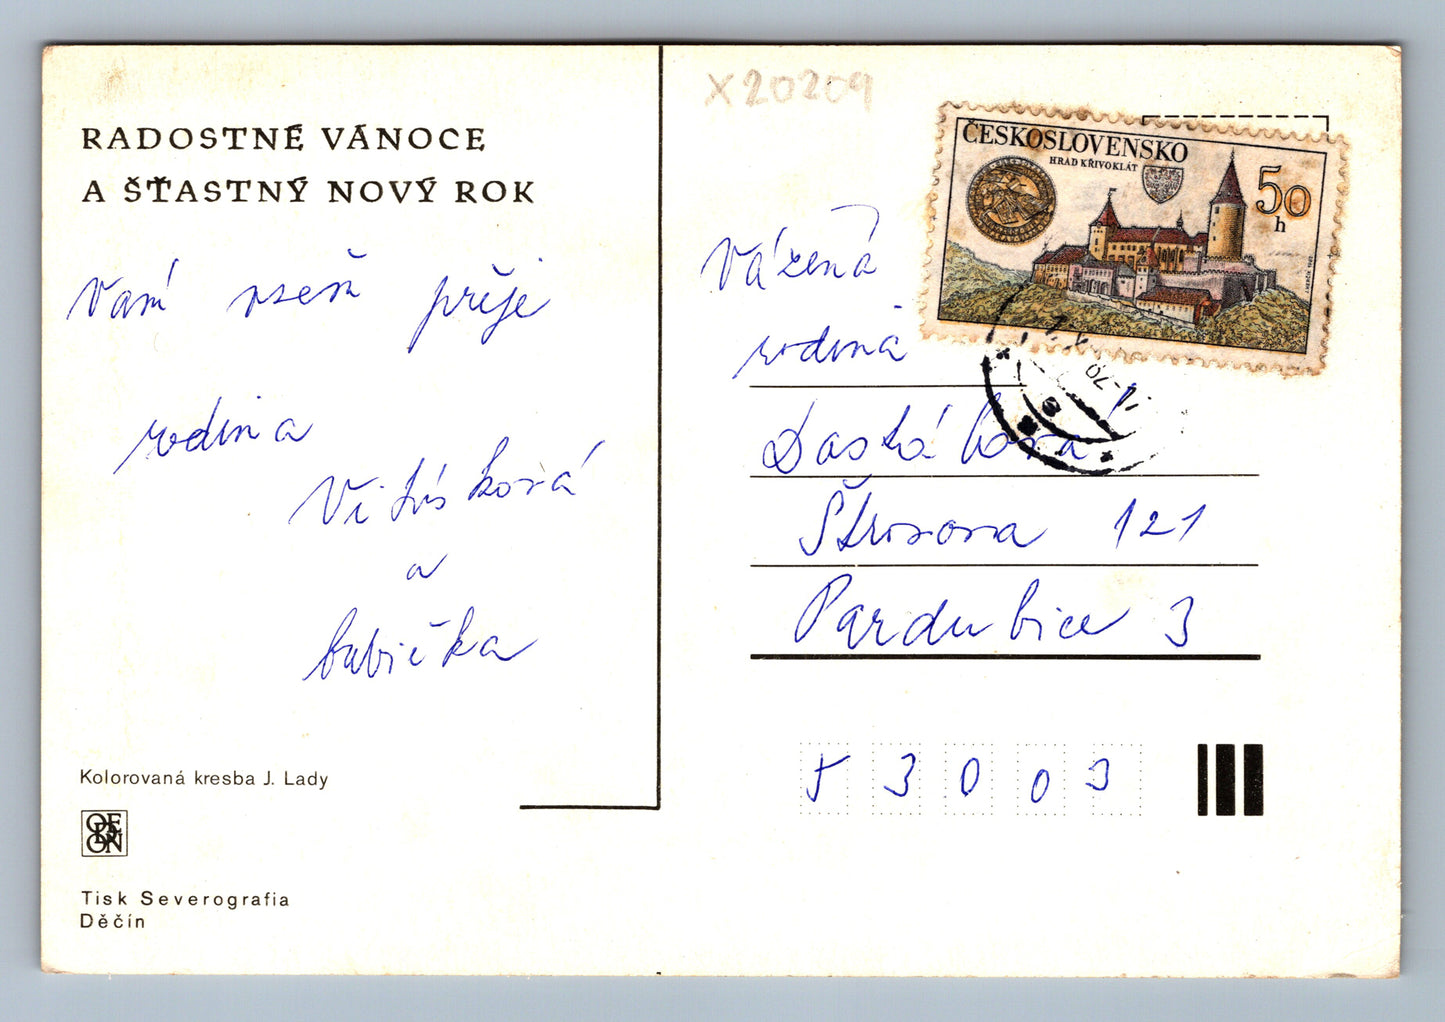 RADOSTNÉ VÁNOCE
A ŠŤASTNÝ NOVÝ ROK
Vam všem přeje
rodina
Vitásková
a
babička
Kolorovaná kresba J. Lady
ODEON
Tisk Severografia
Děčín
X20209
ČESKOSLOVENSKO
HRAD KŘIVOKLÁT
50
h
Vážená
rodina
Štrosova 121
Pardubice 3
53003